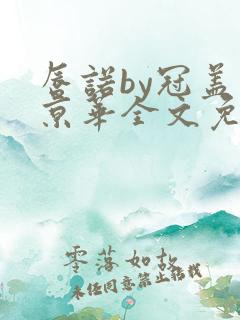 唇諾by冠盖
京華全文免
零落如故
未经同意禁止搭载